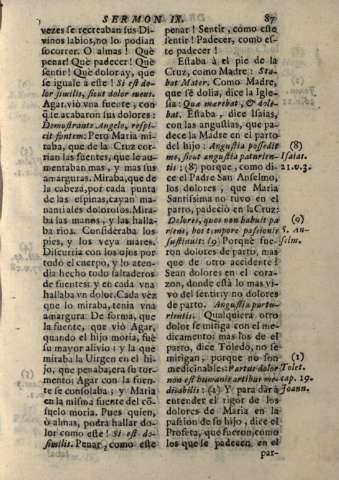 SERMON IX. 87
vezes se recreaban sus Di-
vinos labios, no lo podian
socorrer. O almas! Què
penar! Què padecer! Què
sentir! Què dolor ay, que
se iguale à este! Si est do-
lor similis, sicut dolor meus.
Agar viò una fuente, con
q̃ se acabaron sus dolores:
Demonstrante Angelo, respi-
cit fontem: Pero Maria mi-
raba, que de la Cruz cor-
rian las fuentes, que le au-
mentaban mas, y mas sus
amarguras. Miraba, que de
la cabeza, por cada punta
de las espinas, cayan ma-
nantiales dolorosos. Mira-
ba las manos, y las halla-
ba rios. Consideraba los
pies, y los veya mares.
Discurria con los ojos por
todo el cuerpo, y lo aten-
dia hecho todo saltaderos
de fuentes: y en cada vna
hallaba vn dolor. Cada vez
que lo miraba, tenia vna
amargura. De forma, que
la fuente, que viò Agar,
quando el hijo moria, fuè
su mayor alivio: y la que
miraba la Uirgen en el hi-
jo, que penaba, era su tor-
mento: Agar con la fuen-
te se consolaba; y Maria
en la misma fuente del cõ-
suelo moria. Pues quien,
ò almas, podrà hallar do-
lor como este! Si est do-
similis. Penar, como este
penar! Sentir, como este
sentir! Padecer, como es-
te padecer!
Estaba à el pie de la
Cruz, como Madre: Sta-
bat Mater. Como Madre,
que se dolia, dice la Igle-
sia: Quæ mœrebat, & dole-
bat. Estaba, dice Isaias,
con las angustias, que pa-
dece la Madre en el parto
del hijo: Angustia possedit
me, sicut angustia parturien-
tis: (8) porque, como di-
ce el Padre San Anselmo,
los dolores, que Maria
Santissima no tuvo en el
parto, padeciò en la Cruz:
Dolores, quos non habuit pa-
riens, hos tempore passionis
sustinuit: (9) Porquè fue-
ron dolores de parto, mas
que de otro accidente?
Sean dolores en el cora-
zon, donde està lo mas vi-
vo del sentir; y no dolores
de parto. Angustia partu-
rientis. Qualquiera otro
dolor se mitiga con el me-
dicamento: mas los de el
parto, dice Toledo, no se
mitigan, porque no son
medicinables: Partus dolor
non est humanis artibus me-
dicabilis: (1) Y para dàr à
entender el rigor de los
dolores de Maria en la
passion de su hijo, dice el
Profeta, què fueron, como
los que se padecen en el
par-
(8)
Isaiat.
21.v.3.
(9)
S. An-
selm.
(1)
Tolet.
cap. 19.
Joann.